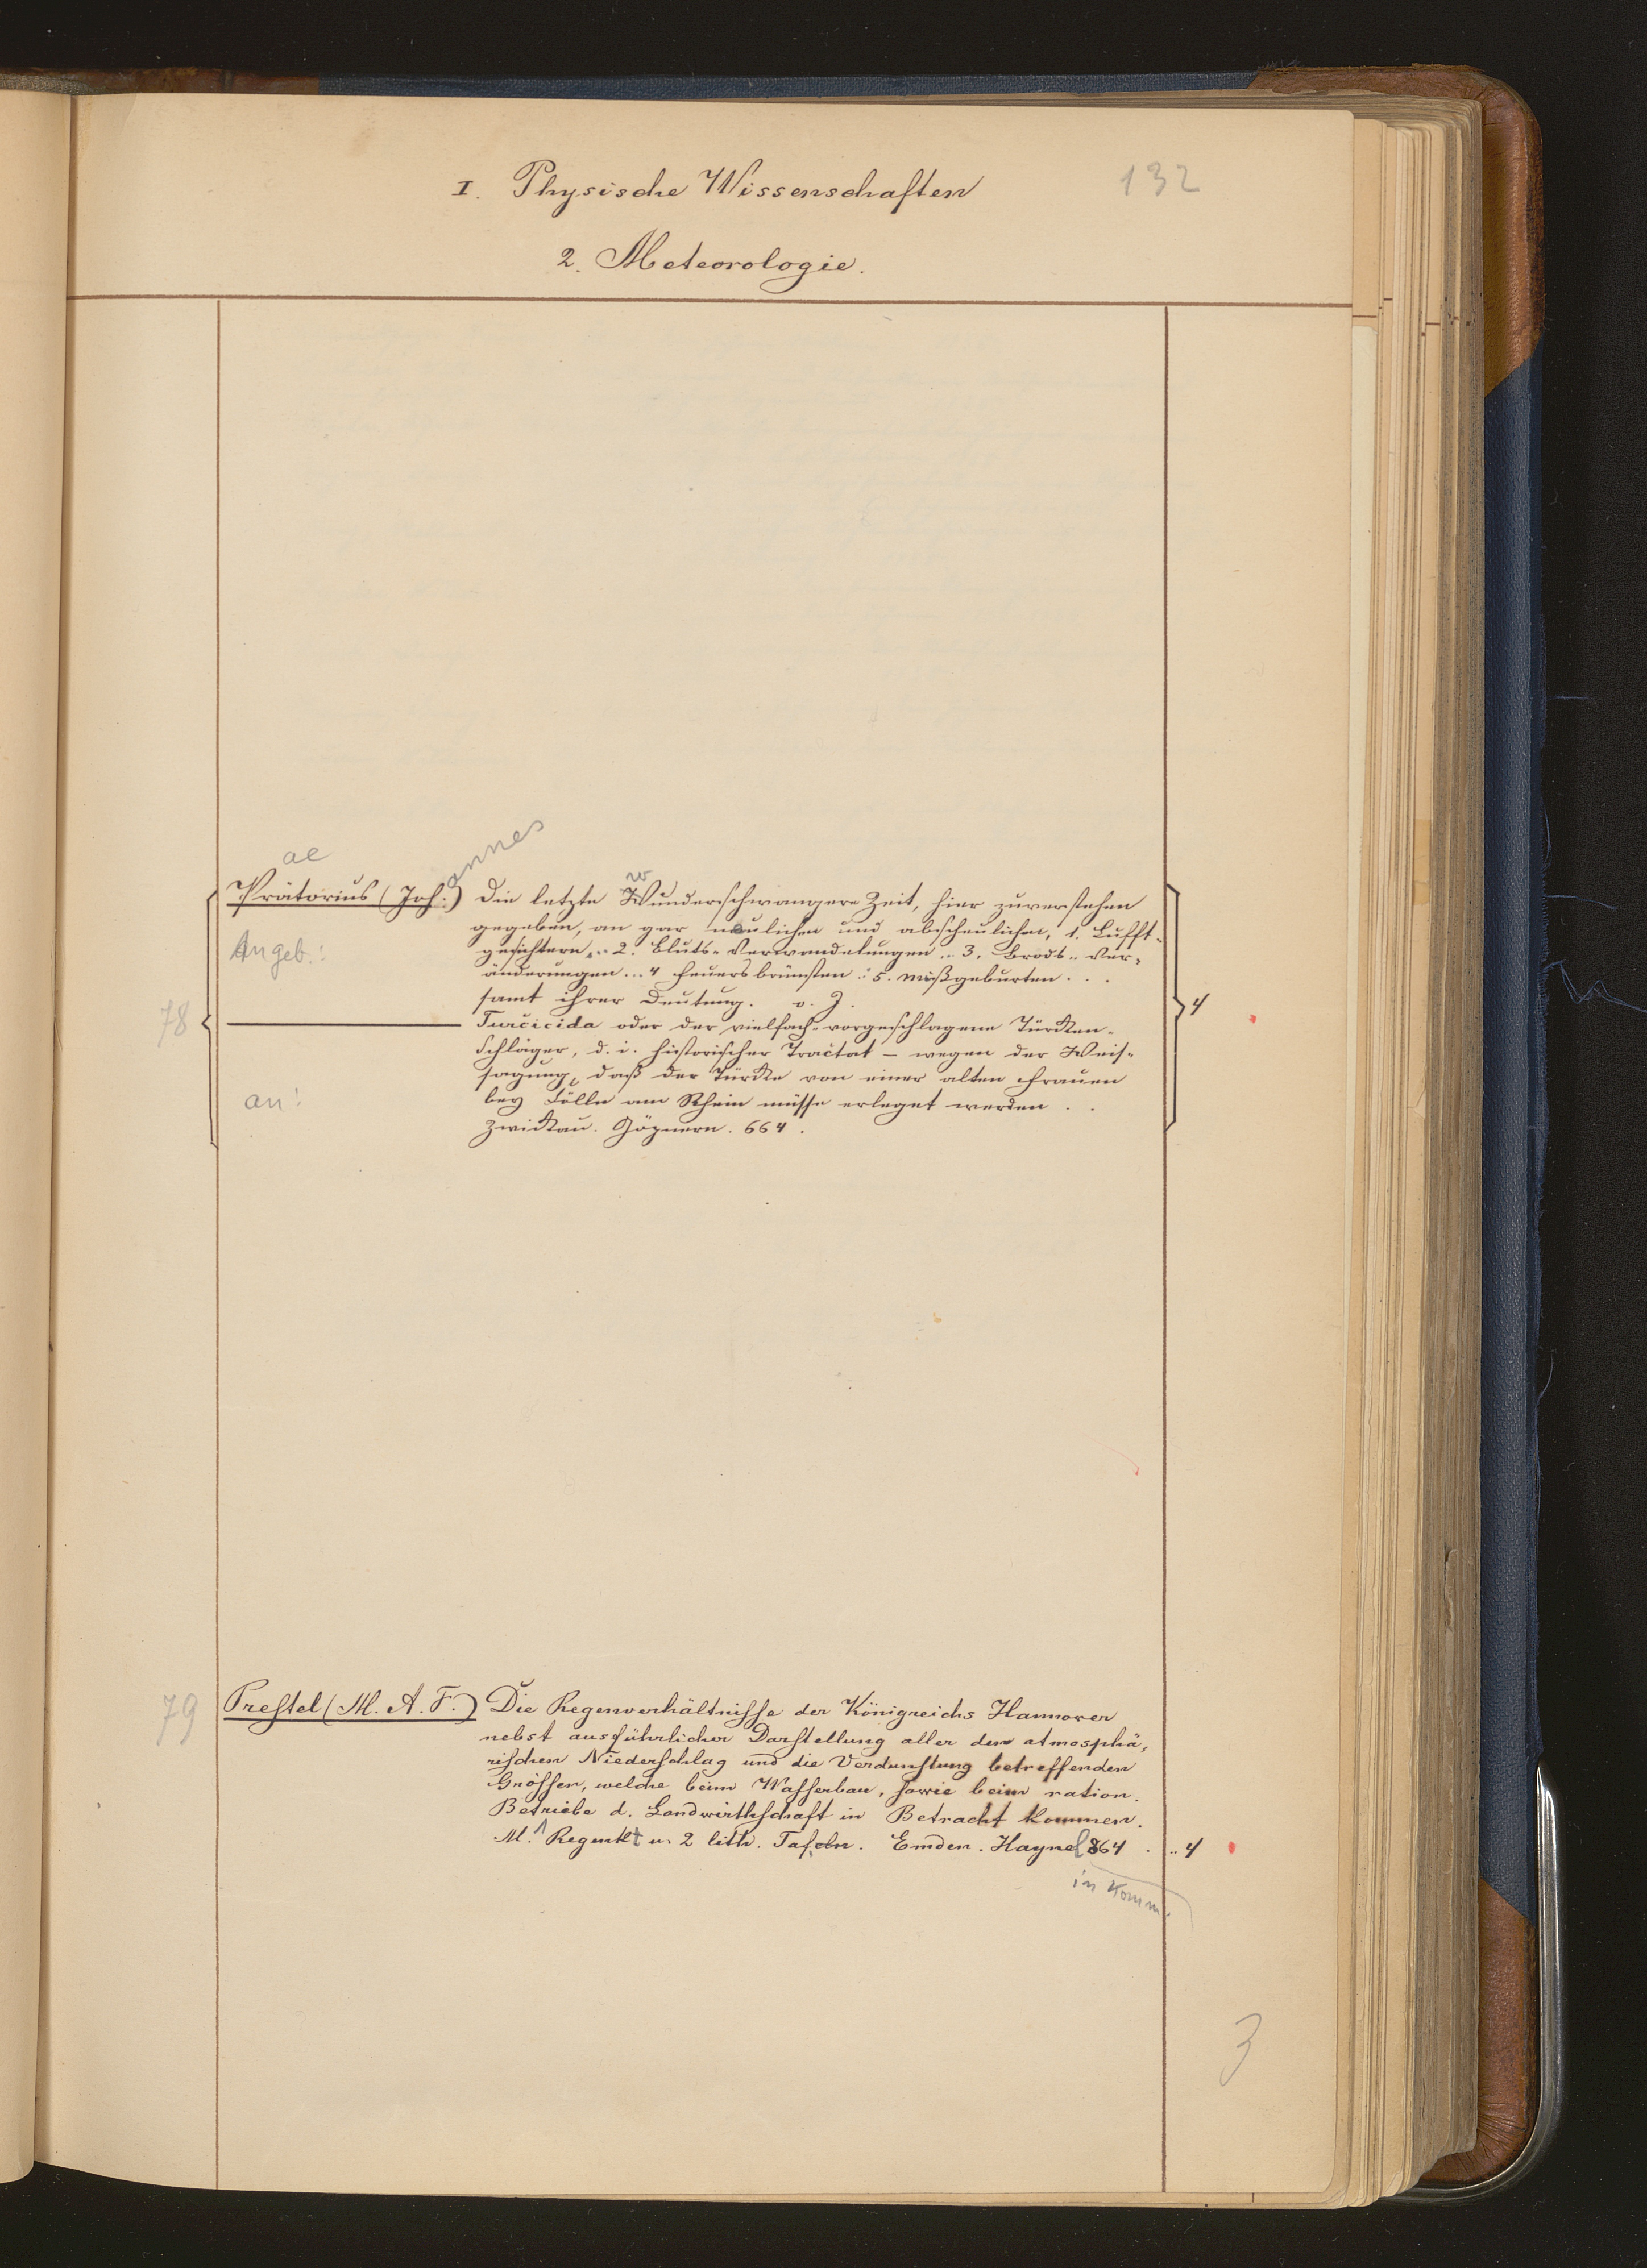 I. Physische Wissenschaften 132
2. Meteorologie.
ae annes
Prätorius (Joh:) Die letzte Wunderschwangere Zeit, hier zuverstehen
w
gegeben, an gar neulichen und abscheulichen, 1. Lufft-
Angeb.: gesichtern ... 2. Bluts-Verwandelungen ... 3. Brods-Ver-
änderungen ... 4 Feuersbrünsten .. 5. Mißgeburten ...
78 samt ihrer Deutung. o. J. 4
Turcicida oder der vielfach-vorgeschlagene Türcken-
Schläger, d. i. historischer Tractat – wegen der Weis-
sagung, daß der Türcke von einer alten Frauen
an: bey Cölln am Rhein müsse erleget werden . .
Zwickau. Göpnern. 664.
79 Prestel (M. A. F.) Die Regenverhältnisse der Königreichs Hannover
nebst ausführlicher Darstellung aller den atmosphä-
rischen Niederschlag und die Verdunstung betreffenden
Grössen, welche beim Wasserbau, sowie beim ration.
Betriebe d. Landwirthschaft in Betracht kommen.
M. 1 Regenkt u. 2 lith. Tafeln. Emden. Haynel 864 . .. 4
in Komm.
3